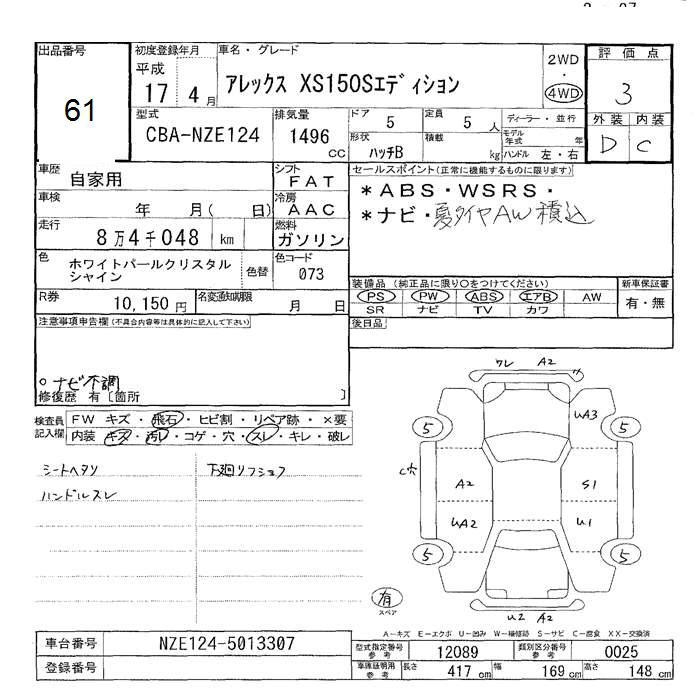 出品番号
61
初度登録年月
平成
17 4月
車名・グレード
アレックス XS150Sエディション
2WD
・
4WD
評価点
3
外装 内装
D C
型式
CBA-NZE124
排気量
1496
CC
ドア 5
定員 5 人
形状
ハッチB
積載
kg
ディーラー・並行
モデル年式 年
ハンドル 左・右
車歴
自家用
シフト
FAT
車検
年 月( 日)
冷房
AAC
走行
8万4千048 km
燃料
ガソリン
色
ホワイトパールクリスタル
シャイン
色替
色コード
073
R券
10,150円
名変通知期限
月 日
セールスポイント(正常に機能するものに限ります)
*ABS・WSRS・
*ナビ・夏タイヤAW積込
装備品(純正品に限り○をつけてください)
PS PW ABS エアB AW
SR ナビ TV カワ
新車保証書
有・無
後日品
注意事項申告欄(不具合内容等は具体的に記入して下さい)
○ナビ不調
修復歴 有〔箇所 〕
検査員
記入欄
FW キズ・飛石・ヒビ割・リペア跡・×要
内装 キズ・汚レ・コゲ・穴・スレ・キレ・破レ
シートヘタリ
ハンドルスレ
下廻リフシュフ
ワレ A2
UA3
5 5
C穴
A2 S1
UA2 U1
5 5
有
スペア
U2 A2
A-キズ E-エクボ U-凹み W-補修跡 S-サビ C-腐食 XX-交換済
車台番号
NZE124-5013307
登録番号
型式指定番号
参考
12089
類別区分番号
参考
0025
車庫証明用
参考
長さ 417 cm
幅 169 cm
高さ 148 cm